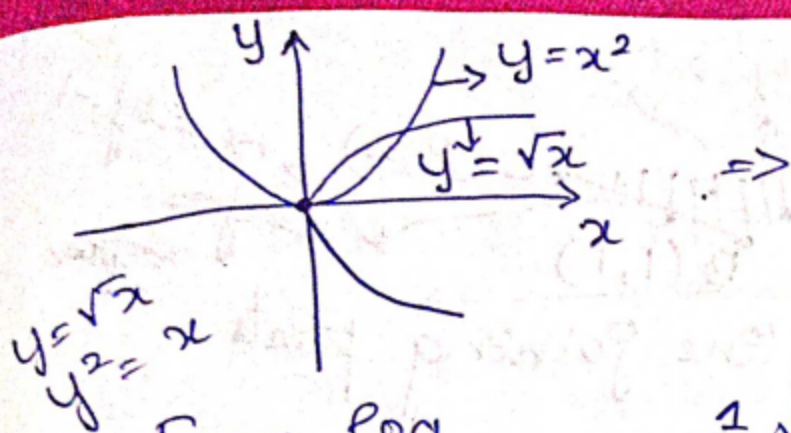 y
y = x²
y = √x
=>
x
y = √x
y² = x
1